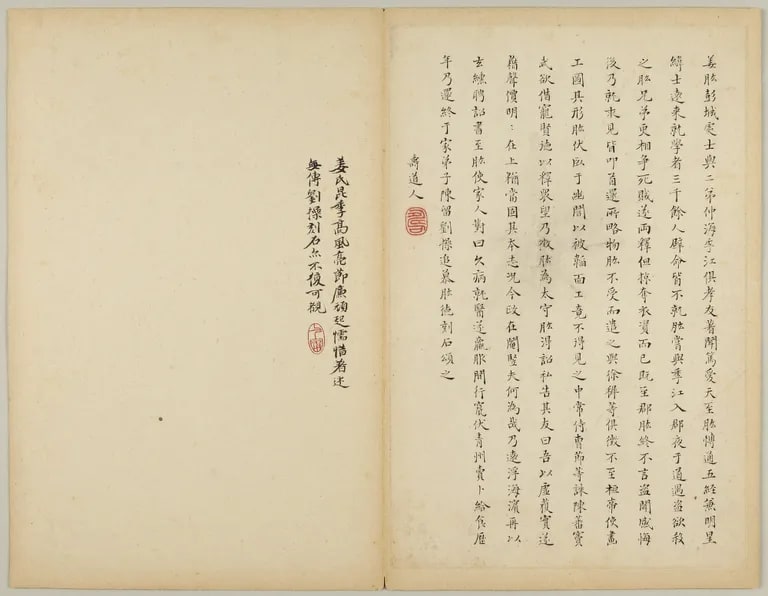 姜肱彭城處士與二弟仲海季江俱孝友著聞篤愛天至肱博通五經兼明星
緯士遠來就學者三千餘人辟命皆不就肱嘗與季江入郡夜于道遇盜欲殺
之肱兄弟更相爭死賊遂兩釋但掠奪衣資而已既至郡肱終不言盜聞感悔
後乃就求見皆叩首還所略物肱不受而遣之與徐穉等俱徵不至桓帝使畫
工圖其形肱伏臥于幽闇以被韜面工竟不得見之中常侍曹節等誅陳蕃竇
武欲借寵賢德以釋眾望乃徵肱為太守肱得詔私告其友曰吾以虛獲實遂
藉聲價明：在上猶當固其本志況今政在閹豎夫何為哉乃遠浮海濱再以
玄纁聘詔書至肱使家人對曰久病就醫遂羸服間行竄伏青州賣卜給食歷
年乃還終于家弟子陳留劉操追慕肱德刻石頌之
壽道人
姜氏昆季高風亮節廉頑起懦惜著述
無傳劉操刻石亦不復可觀